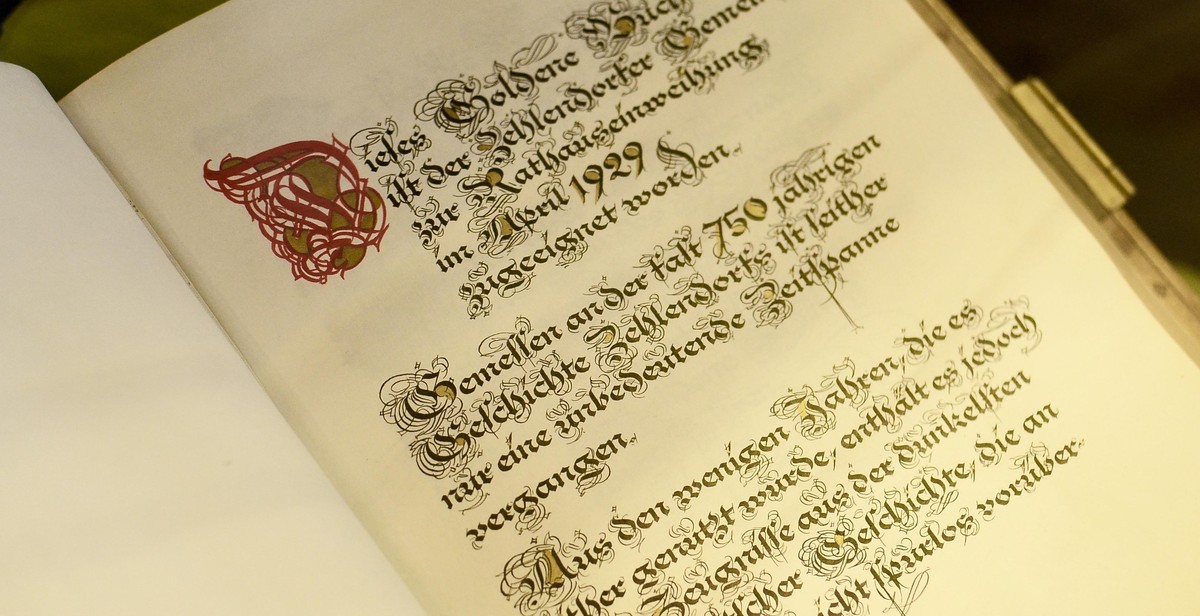 Dieses Goldene Buch
ist der Zehlendorfer
zur Rathauseinweihung
im April 1929 den
zugeeignet worden.
Gemessen an der fast 750 jährigen
Geschichte Zehlendorfs ist seither
nur eine unbedeutende Zeitspanne
vergangen.
Aus den wenigen Jahren, die es
genutzt wurde, enthält es jedoch
Zeugnisse aus der dunkelsten
Geschichte, die an
spurlos vorüber